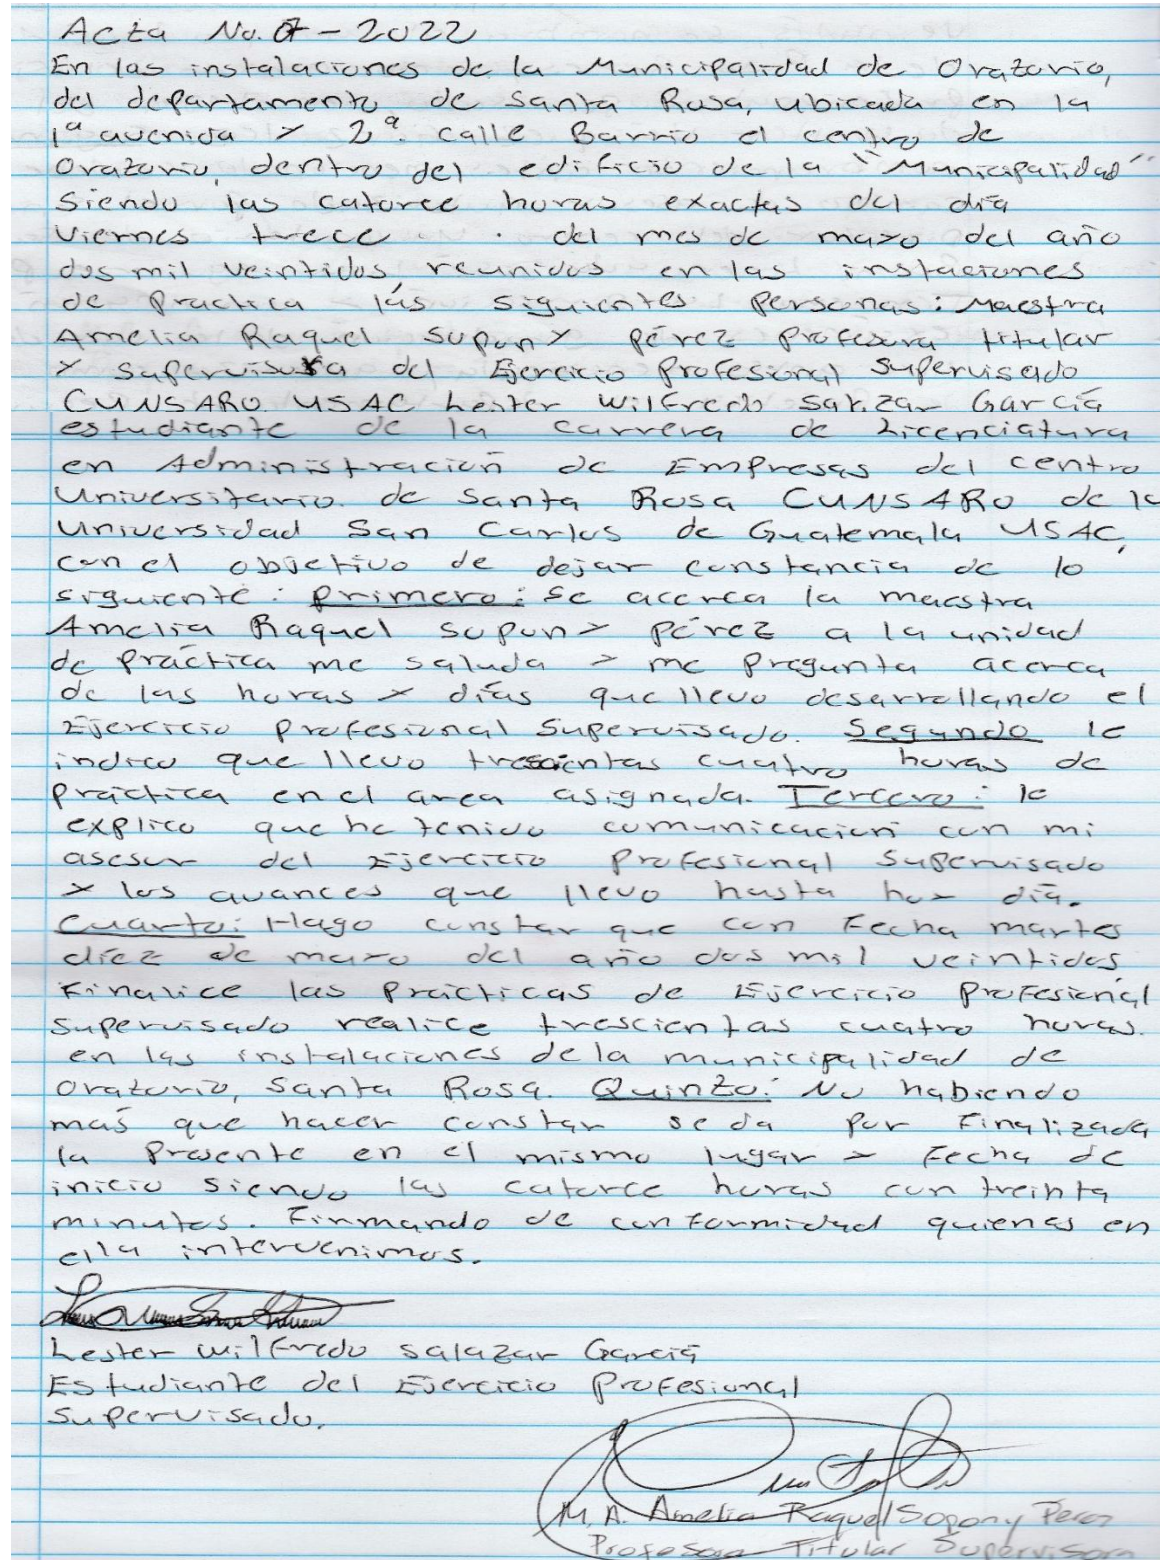 Acta No. 07-2022
En las instalaciones de la Municipalidad de Oratorio,
del departamento de Santa Rosa, ubicada en la
1ª avenida y 2ª. calle Barrio el centro de
Oratorio, dentro del edificio de la "Municipalidad"
Siendo las catorce horas exactas del día
viernes trece . . del mes de mayo del año
dos mil veintidos reunidos en las instaciones
de practica lás siguientes personas: Maestra
Amelia Raquel Supon y pérez profesora titular
y supervisora del Ejercicio profesional supervisado
CUNSARO USAC Lester Wilfredo Salazar García
estudiante de la carrera de Licenciatura
en Administración de Empresas del centro
Universitario de Santa Rosa CUNSARO de la
Universidad San Carlos de Guatemala USAC,
con el objetivo de dejar constancia de lo
siguiente: primero: se acerca la maestra
Amelia Raquel Supon y pérez a la unidad
de práctica me saluda y me pregunta acerca
de las horas y días que llevo desarrollando el
Ejercicio profesional Supervisado. Segundo le
indico que llevo trescientas cuatro horas de
práctica en el area asignada. Tercero: le
explico que he tenido comunicación con mi
asesor del Ejercicio profesional Supervisado
y los avances que llevo hasta hoy día.
Cuarto: Hago constar que con Fecha martes
diez de mayo del año dos mil veintidos
Finalice las prácticas de Ejercicio profesional
supervisado realice trescientas cuatro horas.
en las instalaciones de la municipalidad de
Oratorio, Santa Rosa. Quinto: No habiendo
más que hacer constar se da por Finalizada
la presente en el mismo lugar y Fecha de
inicio siendo las catorce horas con treinta
minutos. Firmando de conformidad quienes en
ella intervenimos.
Lester Wilfredo Salazar García
Estudiante del Ejercicio profesional
Supervisado.
M.A. Amelia Raquel Sopony Perez
Profesora Titular Supervisora